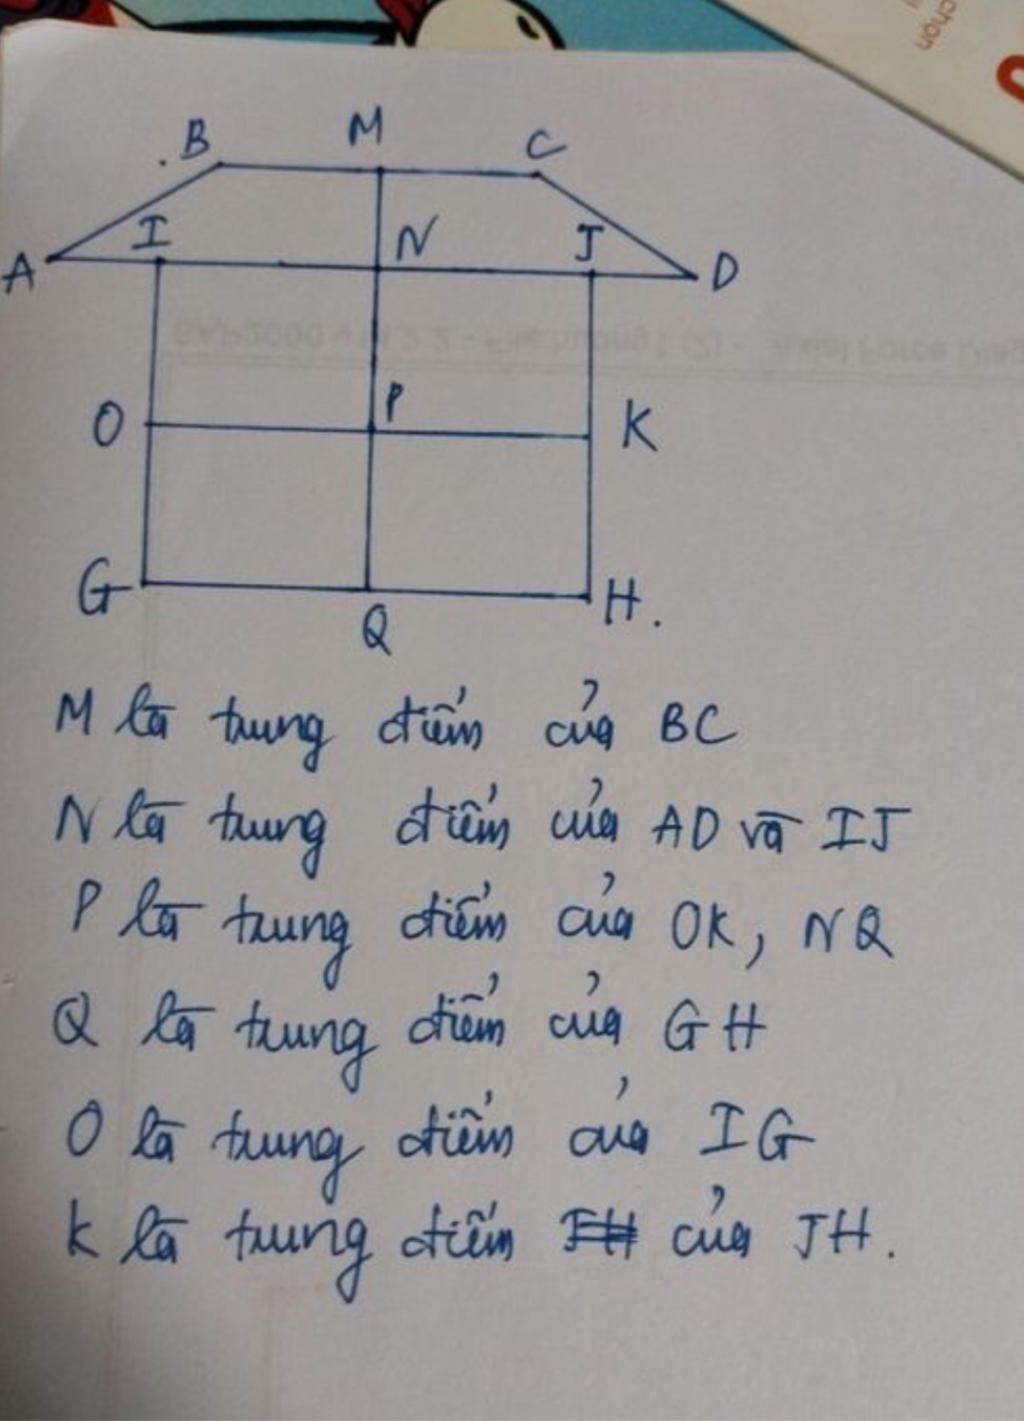 chọn
B M C
A I N J D
O P K
G Q H.
M là trung điểm của BC
N là trung điểm của AD và IJ
P là trung điểm của OK, NQ
Q là trung điểm của GH
O là trung điểm của IG
K là trung điểm JH của JH.